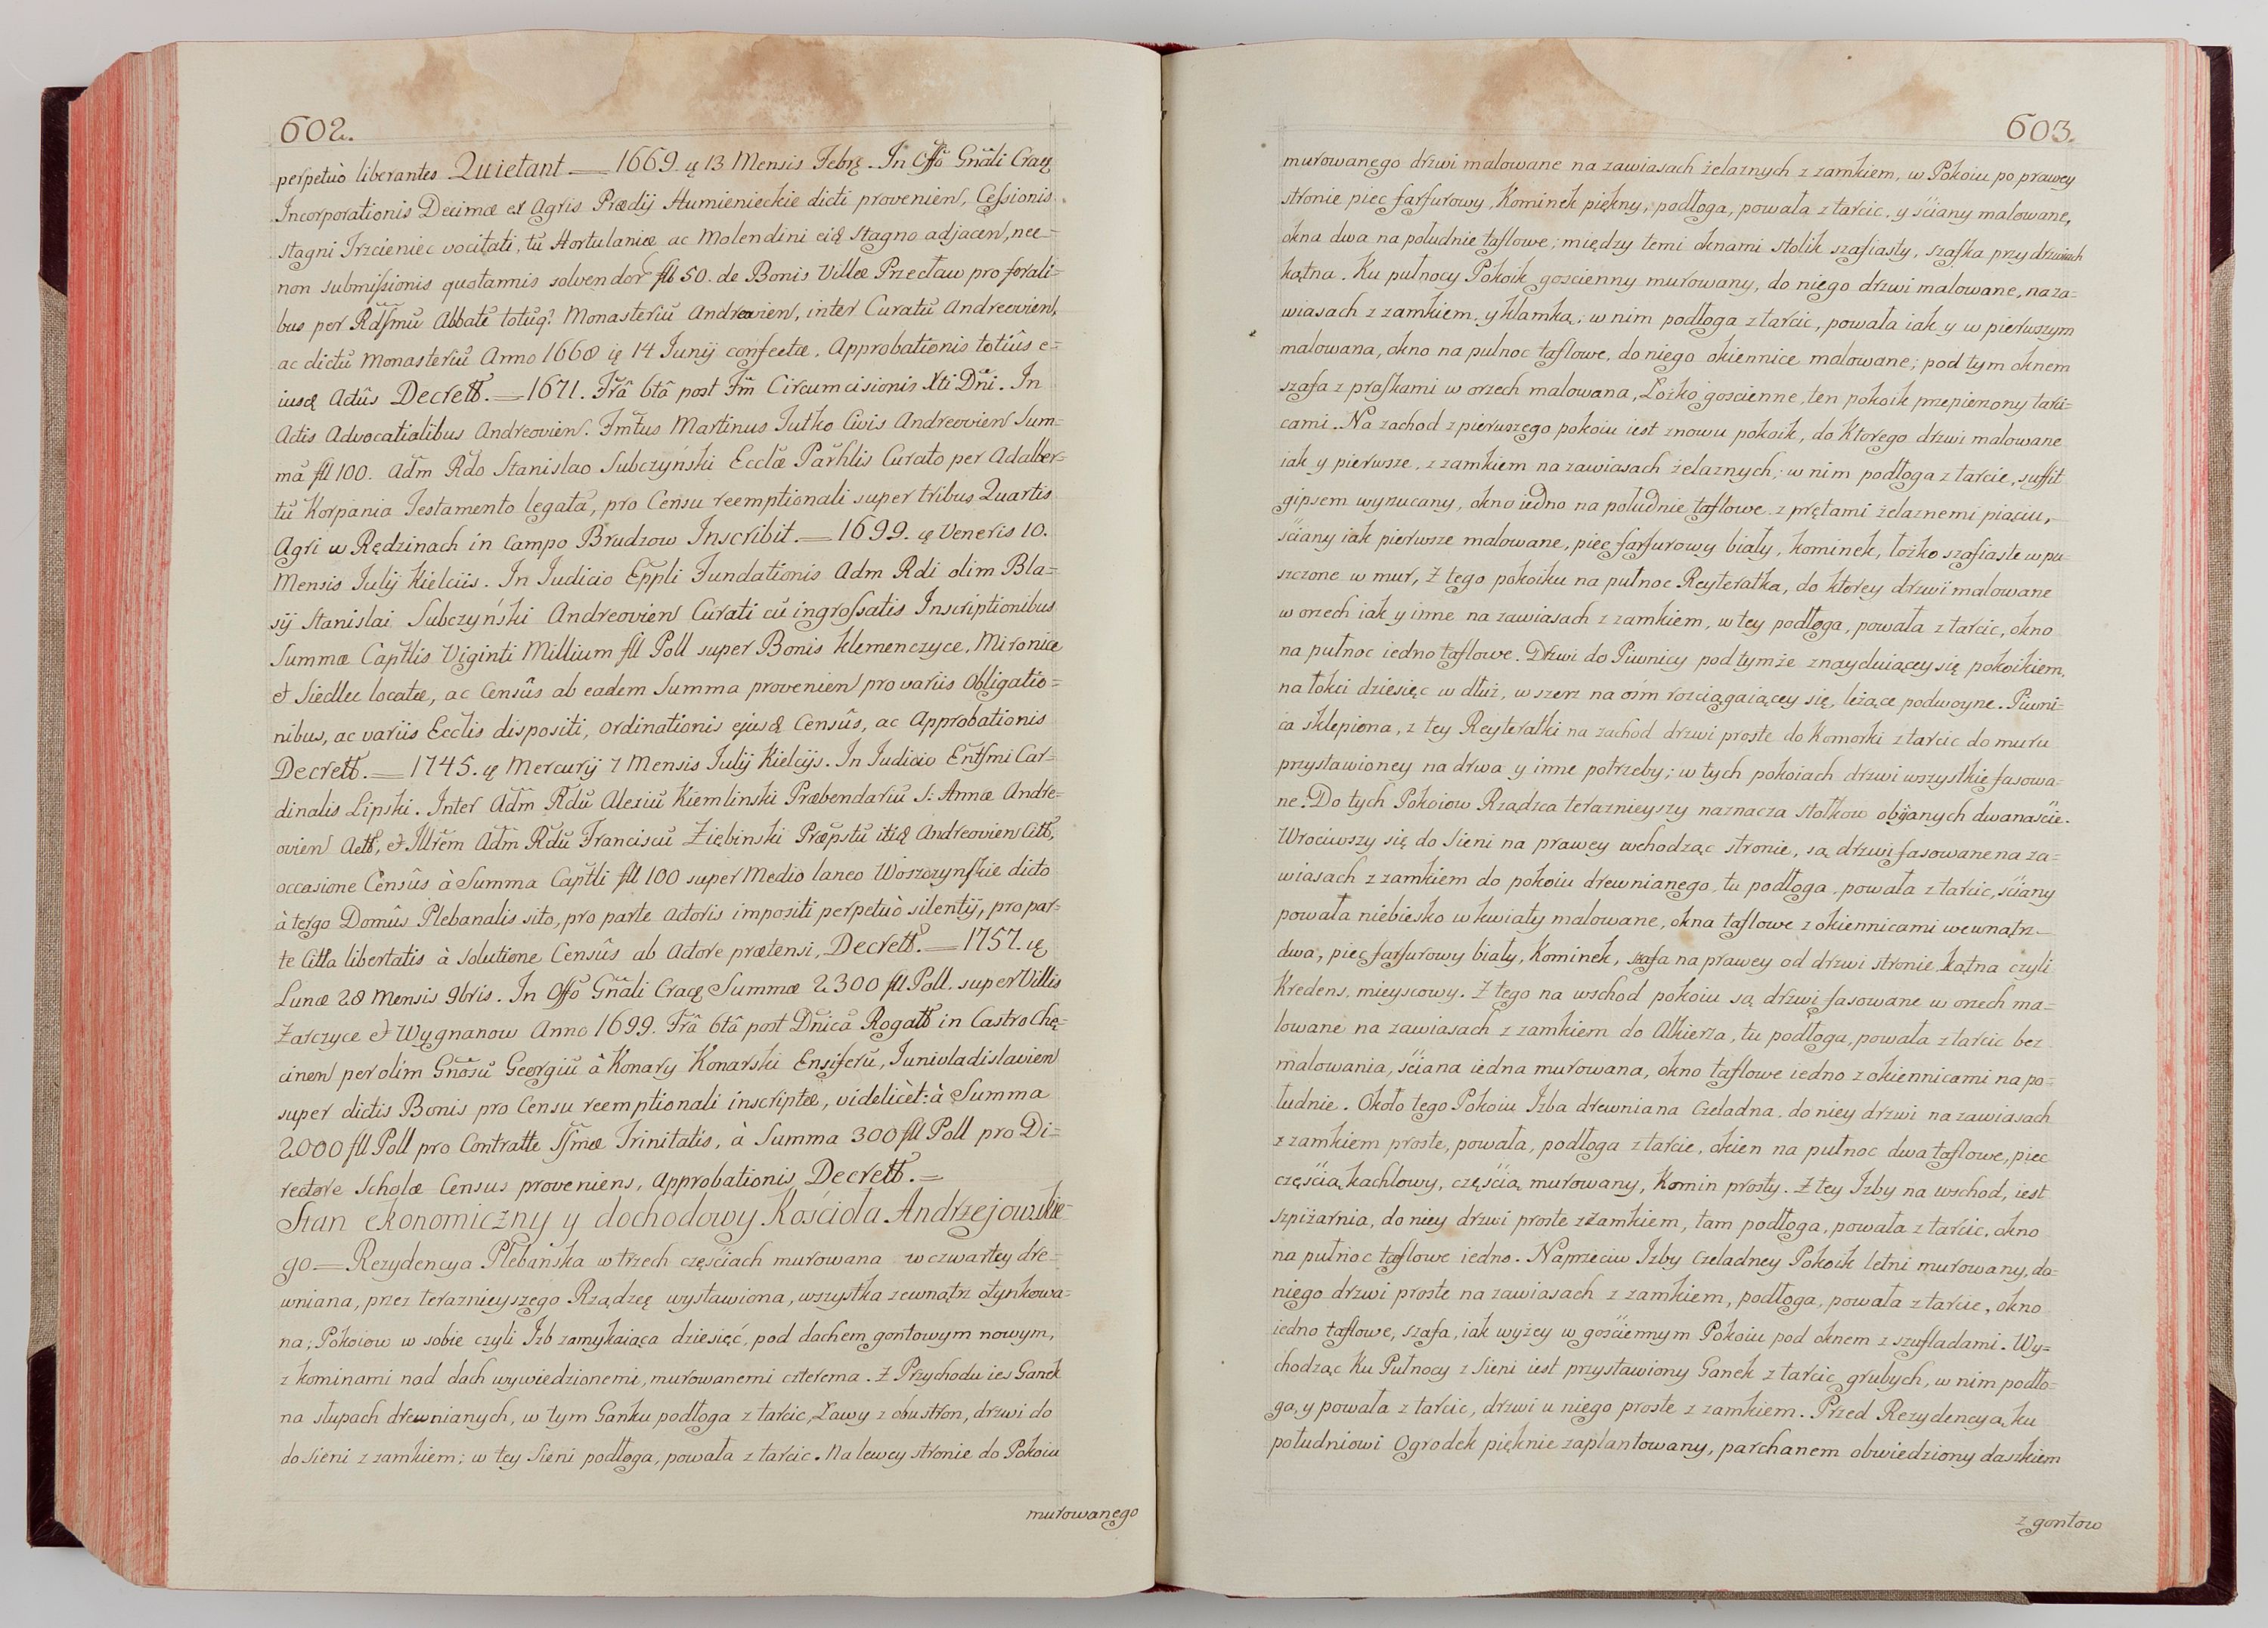 602.
perpetuò liberantes Quietant — 1669. ię 13 Mensis Febrę. In Offô Gnãli Cracę
Incorporationis Decimæ ex Agris Prædij Humienieckie dicti provenien, Ceſsionis
Stagni Trzcieniec vocitati, tũ Hortulaniæ ac Molendini eidę Stagno adjacen, nec-
non submiſsionis quotannis solvendor fl 50. de Bonis Villæ Przecław pro forali=
bus per Rdſmũ Abbatẽ totuq̃ Monasteriũ Andreovien, inter Curatũ Andreovien,
ac dictũ Monasteriũ Anno 1668 ię 14 Junij confectæ, Approbationis totiûs e=
iusdę Actûs Decrett. — 1671. Frâ 6tâ post Fm̃ Circumcisionis Xti Dñi. In
Actis Advocatialibus Andreovien. Fmtus Martinus Jutko Civis Andreovien Sum-
mã fll 100. Adm Rdo Stanislao Subczyński Ecclæ Parhlis Curato per Adalber-
tũ Korpania Testamento legatã, pro Censu reemptionali super tribus Quartis
Agri w Rędzinach in Campo Brudzow Inscribit. — 1699. ię Veneris 10.
Mensis Julij Kielciis. In Judicio Eppli Fundationis Adm Rdi olim Bla=
sij Stanislai Subczyński Andreovien Curati cũ ingroſsatis Inscriptionibus
Summæ Captlis Viginti Millium fll Poll super Bonis Klemenczyce, Mironice
et Siedlec locatæ, ac Censûs ab eadem Summa provenien pro variis Obligatio=
nibus, ac variis Ecclis dispositi, Ordinationis ejusdę Censûs, ac Approbationis
Decrett. — 1745. ię Mercurij 7 Mensis Julij Kielcijs. In Judicio Entſmi Car-
dinalis Lipski. Inter Adm Rdũ Alexiũ Kiemlinski Præbendariũ S: Annæ Andre-
ovien Actt, et Jllrẽm Adm Rdũ Franciscũ Ziębinski Præpstũ itidę Andreovien Citt,
occasione Censûs à Summa Captli fll 100 super Medio laneo Woszczynſkie dicto
à tergo Domûs Plebanalis sito, pro parte Actoris impositi perpetuò silentij, pro par-
te Citta libertatis à solutione Censûs ab Actore prætensi, Decrett. — 1757. ię
Lunæ 28 Mensis 9bris. In Offô Gnãli Cracę Summæ 2300 fll Poll. super Villis
Zarczyce et Wygnanow Anno 1699. Frâ 6tâ post Dnicã Rogatt in Castro Chę=
cinen per olim Gnôsũ Georgiũ à Konary Konarski Ensiferũ, Juniuladislavien
super dictis Bonis pro Censu reemptionali inscriptæ, videlicèt: à Summa
2000 fll Poll pro Contratte Sſmæ Trinitatis, à Summa 300 fll Poll pro Di=
rectore Scholæ Census proveniens, Approbationis Decrett. =
Stan ekonomiczny y dochodowy Kościoła Andrzejowskie-
go — Rezydencya Plebańska w trzech częściach murowana w czwartey dre=
wniana, przez teraznieyszego Rządzcę wystawiona, wszystka zewnątrz otynkowa=
na; Pokoiow w sobie czyli Izb zamykaiąca dziesięć, pod dachem gontowym nowym,
z kominami nad dach wywiedzionemi, murowanemi czterema. Z Przychodu ies Ganek
na słupach drewnianych, w tym Ganku podłoga z tarcic, Ławy z obustron, drzwi do
do Sieni z zamkiem; w tey Sieni podłoga, powała z tarcic. Na lewey stronie do Pokoiu
murowanego
603.
murowanego drzwi malowane na zawiasach żelaznych z zamkiem, w Pokoiu po prawey
stronie piec farfurowy, Kominek piękny, podłoga, powała z tarcic, y ściany malowane,
okna dwa na południe taflowe; między temi oknami stolik szafiasty, szafka przy drzwiach
kątna. Ku pułnocy Pokoik goscienny murowany, do niego drzwi malowane, na za=
wiasach z zamkiem, y klamką; w nim podłoga z tarcic, powała iak y w pierwszym
malowana, okno na pułnoc taflowe, do niego okiennice malowane; pod tym oknem
szafa z praſkami w orzech malowana, Łożko goscienne, ten pokoik przepierzony tarci=
cami. Na zachod z pierwszego pokoiu iest znowu pokoik, do Ktorego drzwi malowane
iak y pierwsze, z zamkiem na zawiasach żelaznych; w nim podłoga z tarcic, suffit
gipsem wyrzucany, okno iedno na południe taflowe z prętami żelaznemi piąciu,
ściany iak pierwsze malowane, piec farfurowy biały, kominek, łożko szafiaste wpu=
szczone w mur, Z tego pokoiku na pułnoc Reyteratka, do ktorey drzwi malowane
w orzech iak y inne na zawiasach z zamkiem, w tey podłoga, powała z tarcic, okno
na pułnoc iedno taflowe. Drzwi do Piwnicy pod tymże znayduiącey się pokoikiem,
na łokci dziesięc w dłuż, w szerz na ośm rozciągaiącey się, leżące podwoyne. Piwni=
ca sklepiona, z tey Reyteratki na zachod drzwi proste do Komorki z tarcic do muru
przystawioney na drwa y inne potrzeby; w tych pokoiach drzwi wszystkie fasowa=
ne. Do tych Pokoiow Rządzca teraznieyszy naznacza stołkow obijanych dwanaście.
Wrociwszy się do Sieni na prawey wchodząc stronie, są drzwi fasowane na za=
wiasach z zamkiem do pokoiu drewnianego, tu podłoga, powała z tarcic, ściany
powała niebiesko w kwiaty malowane, okna taflowe z okiennicami wewnątrz
dwa, piec farfurowy biały, Kominek, szafa na prawey od drzwi stronie kątna czyli
Kredens, mieyscowy. Z tego na wschod pokoiu są drzwi fasowane w orzech ma=
lowane na zawiasach z zamkiem do Alkierza, tu podłoga, powała z tarcic bez
malowania, ściana iedna murowana, okno taflowe iedno z okiennicami na po=
łudnie. Około tego Pokoiu Izba drewniana Czeladna, do niey drzwi na zawiasach
z zamkiem proste, powała, podłoga z tarcic, okien na pułnoc dwa taflowe, piec
częścią kachlowy, częścią murowany, Komin prosty. Z tey Izby na wschod, iest
szpiżarnia, do niey drzwi proste z zamkiem, tam podłoga, powała z tarcic, okno
na pułnoc taflowe iedno. Naprzeciw Izby Czeladney Pokoik letni murowany, do
niego drzwi proste na zawiasach z zamkiem, podłoga, powała z tarcic, okno
iedno taflowe, szafa, iak wyżey w gościennym Pokoiu pod oknem z szufladami. Wy=
chodząc Ku Pułnocy z Sieni iest przystawiony Ganek z tarcic grubych, w nim podło=
ga, y powała z tarcic, drzwi u niego proste z zamkiem. Przed Rezydencyą ku
południowi Ogrodek pięknie zaplantowany, parchanem obwiedziony daszkiem
z gontow